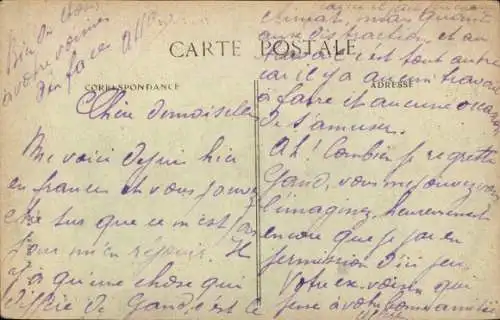 Bien de chose
à votre voisine
d'en face
CARTE POSTALE
CORRESPONDANCE
ADRESSE
Chère demoiselle
Me voici depuis hier
en france et vous pouvez
être sur que ce n'est pas
pour m'en réjouir. Il
n'y a qu'une chose qui
diffère de Gand, c'est le
climat, mais quant
aux distractions et au
travail c'est tout autre
car il y a aucun travail
à faire et aucune
de s'amuser.
Ah! Combien je regrette
Gand, vous me pouvez
l'imaginez, heureusement
encore que j'ai en
permission d'ici peu.
Votre ex-voisin qui
pense à votre bonne amitié